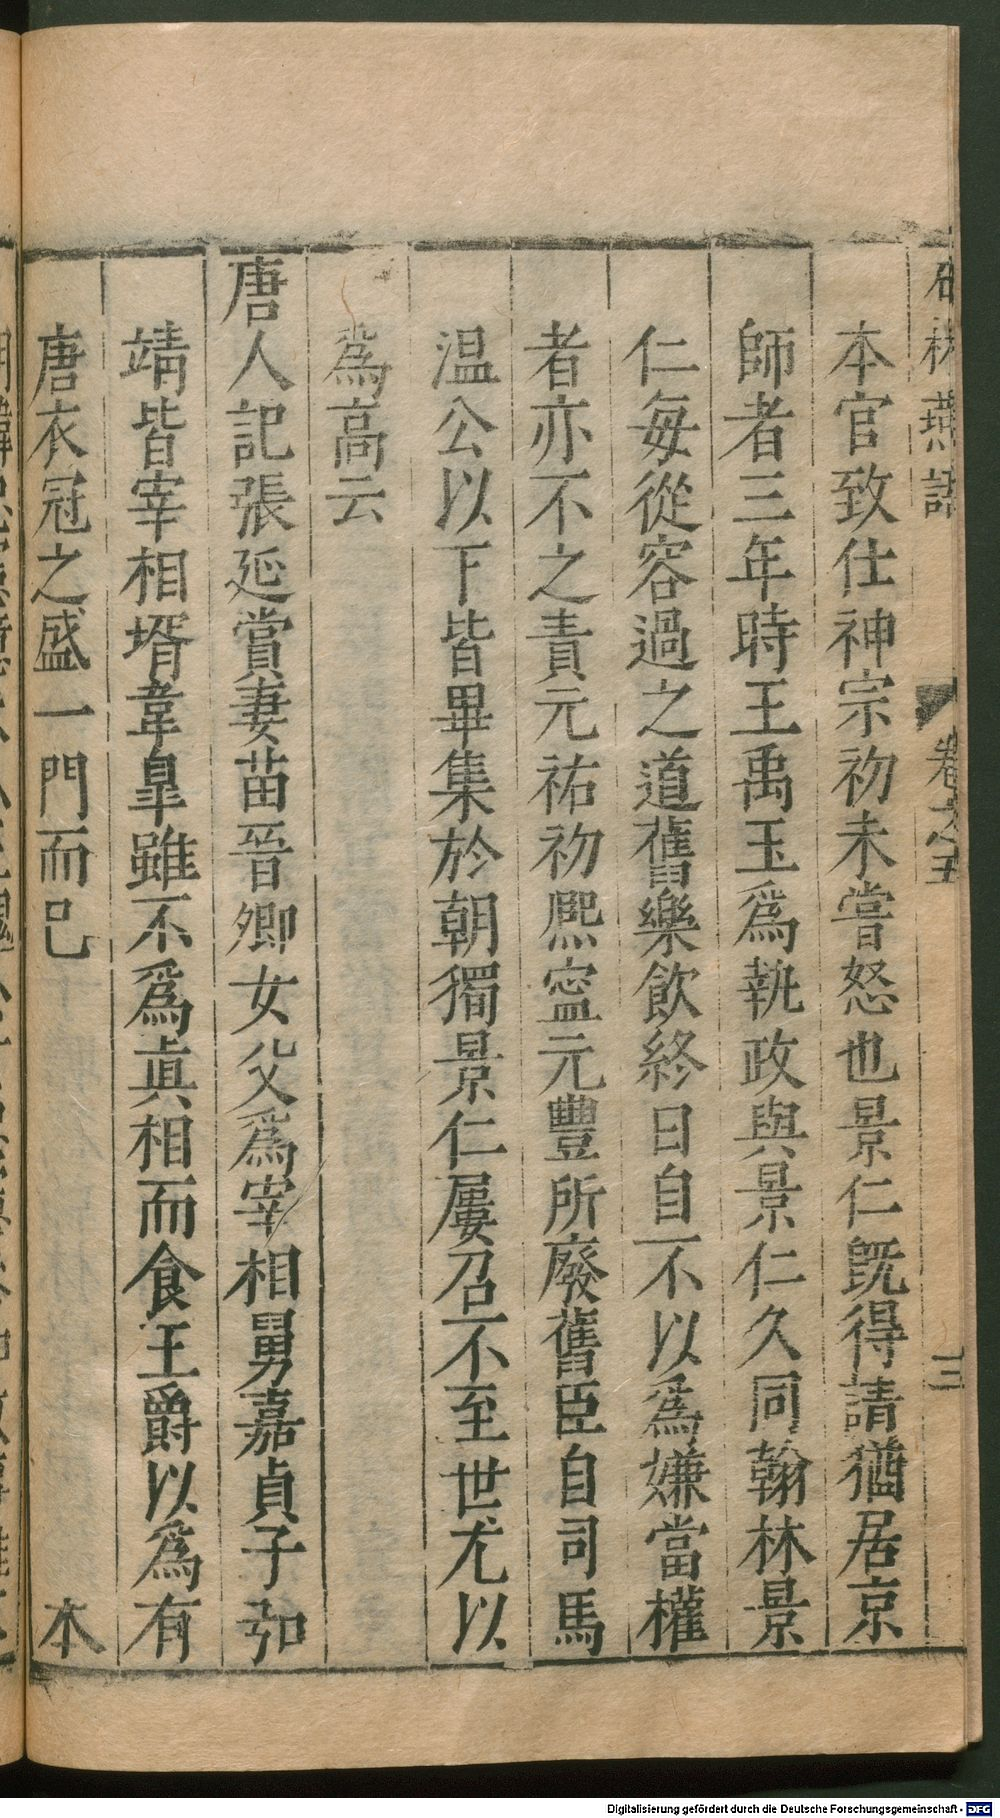 石林燕語 卷之五 三
本官致仕神宗初未嘗怒也景仁旣得請猶居京
師者三年時王禹玉爲執政與景仁久同翰林景
仁每從容過之道舊樂飲終日自不以爲嫌當權
者亦不之責元祐初熈寍元豐所廢舊臣自司馬
温公以下皆畢集於朝獨景仁屢召不至世尤以
爲高云
唐人記張延賞妻苗晉卿女父爲宰相舅嘉貞子弘
靖皆宰相壻韋臯雖不爲眞相而食王爵以爲有
唐衣冠之盛一門而已 本
Digitalisierung gefördert durch die Deutsche Forschungsgemeinschaft - DFG